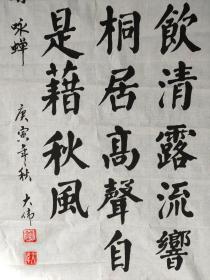 飲清露流響
桐居高聲自
是藉秋風
咏蟬
庚寅年秋 大偉